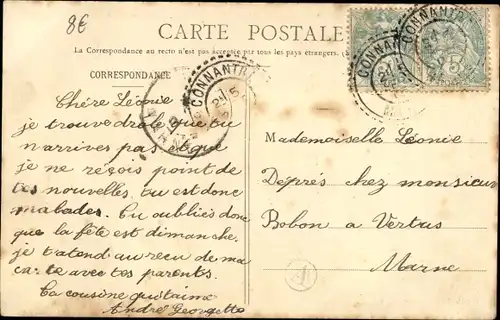 8€
CARTE POSTALE
La Correspondance au recto n'est pas acceptée par tous les pays étrangers.
CORRESPONDANCE
CONNANTRE
CONNANTRE
CONNANTRE
MARNE
Chère Léonie
je trouve drole que tu
n'arrives pas et que
je ne reçois point de
tes nouvelles, tu est donc
malades. Tu oublies donc
que la fête est dimanche,
je t'atend au recu de ma
carte avec tes parents.
Ta cousine qui t'aime
André Georgette
Mademoiselle Léonie
Deprés chez monsieur
Bobon a Vertus
Marne
A
5